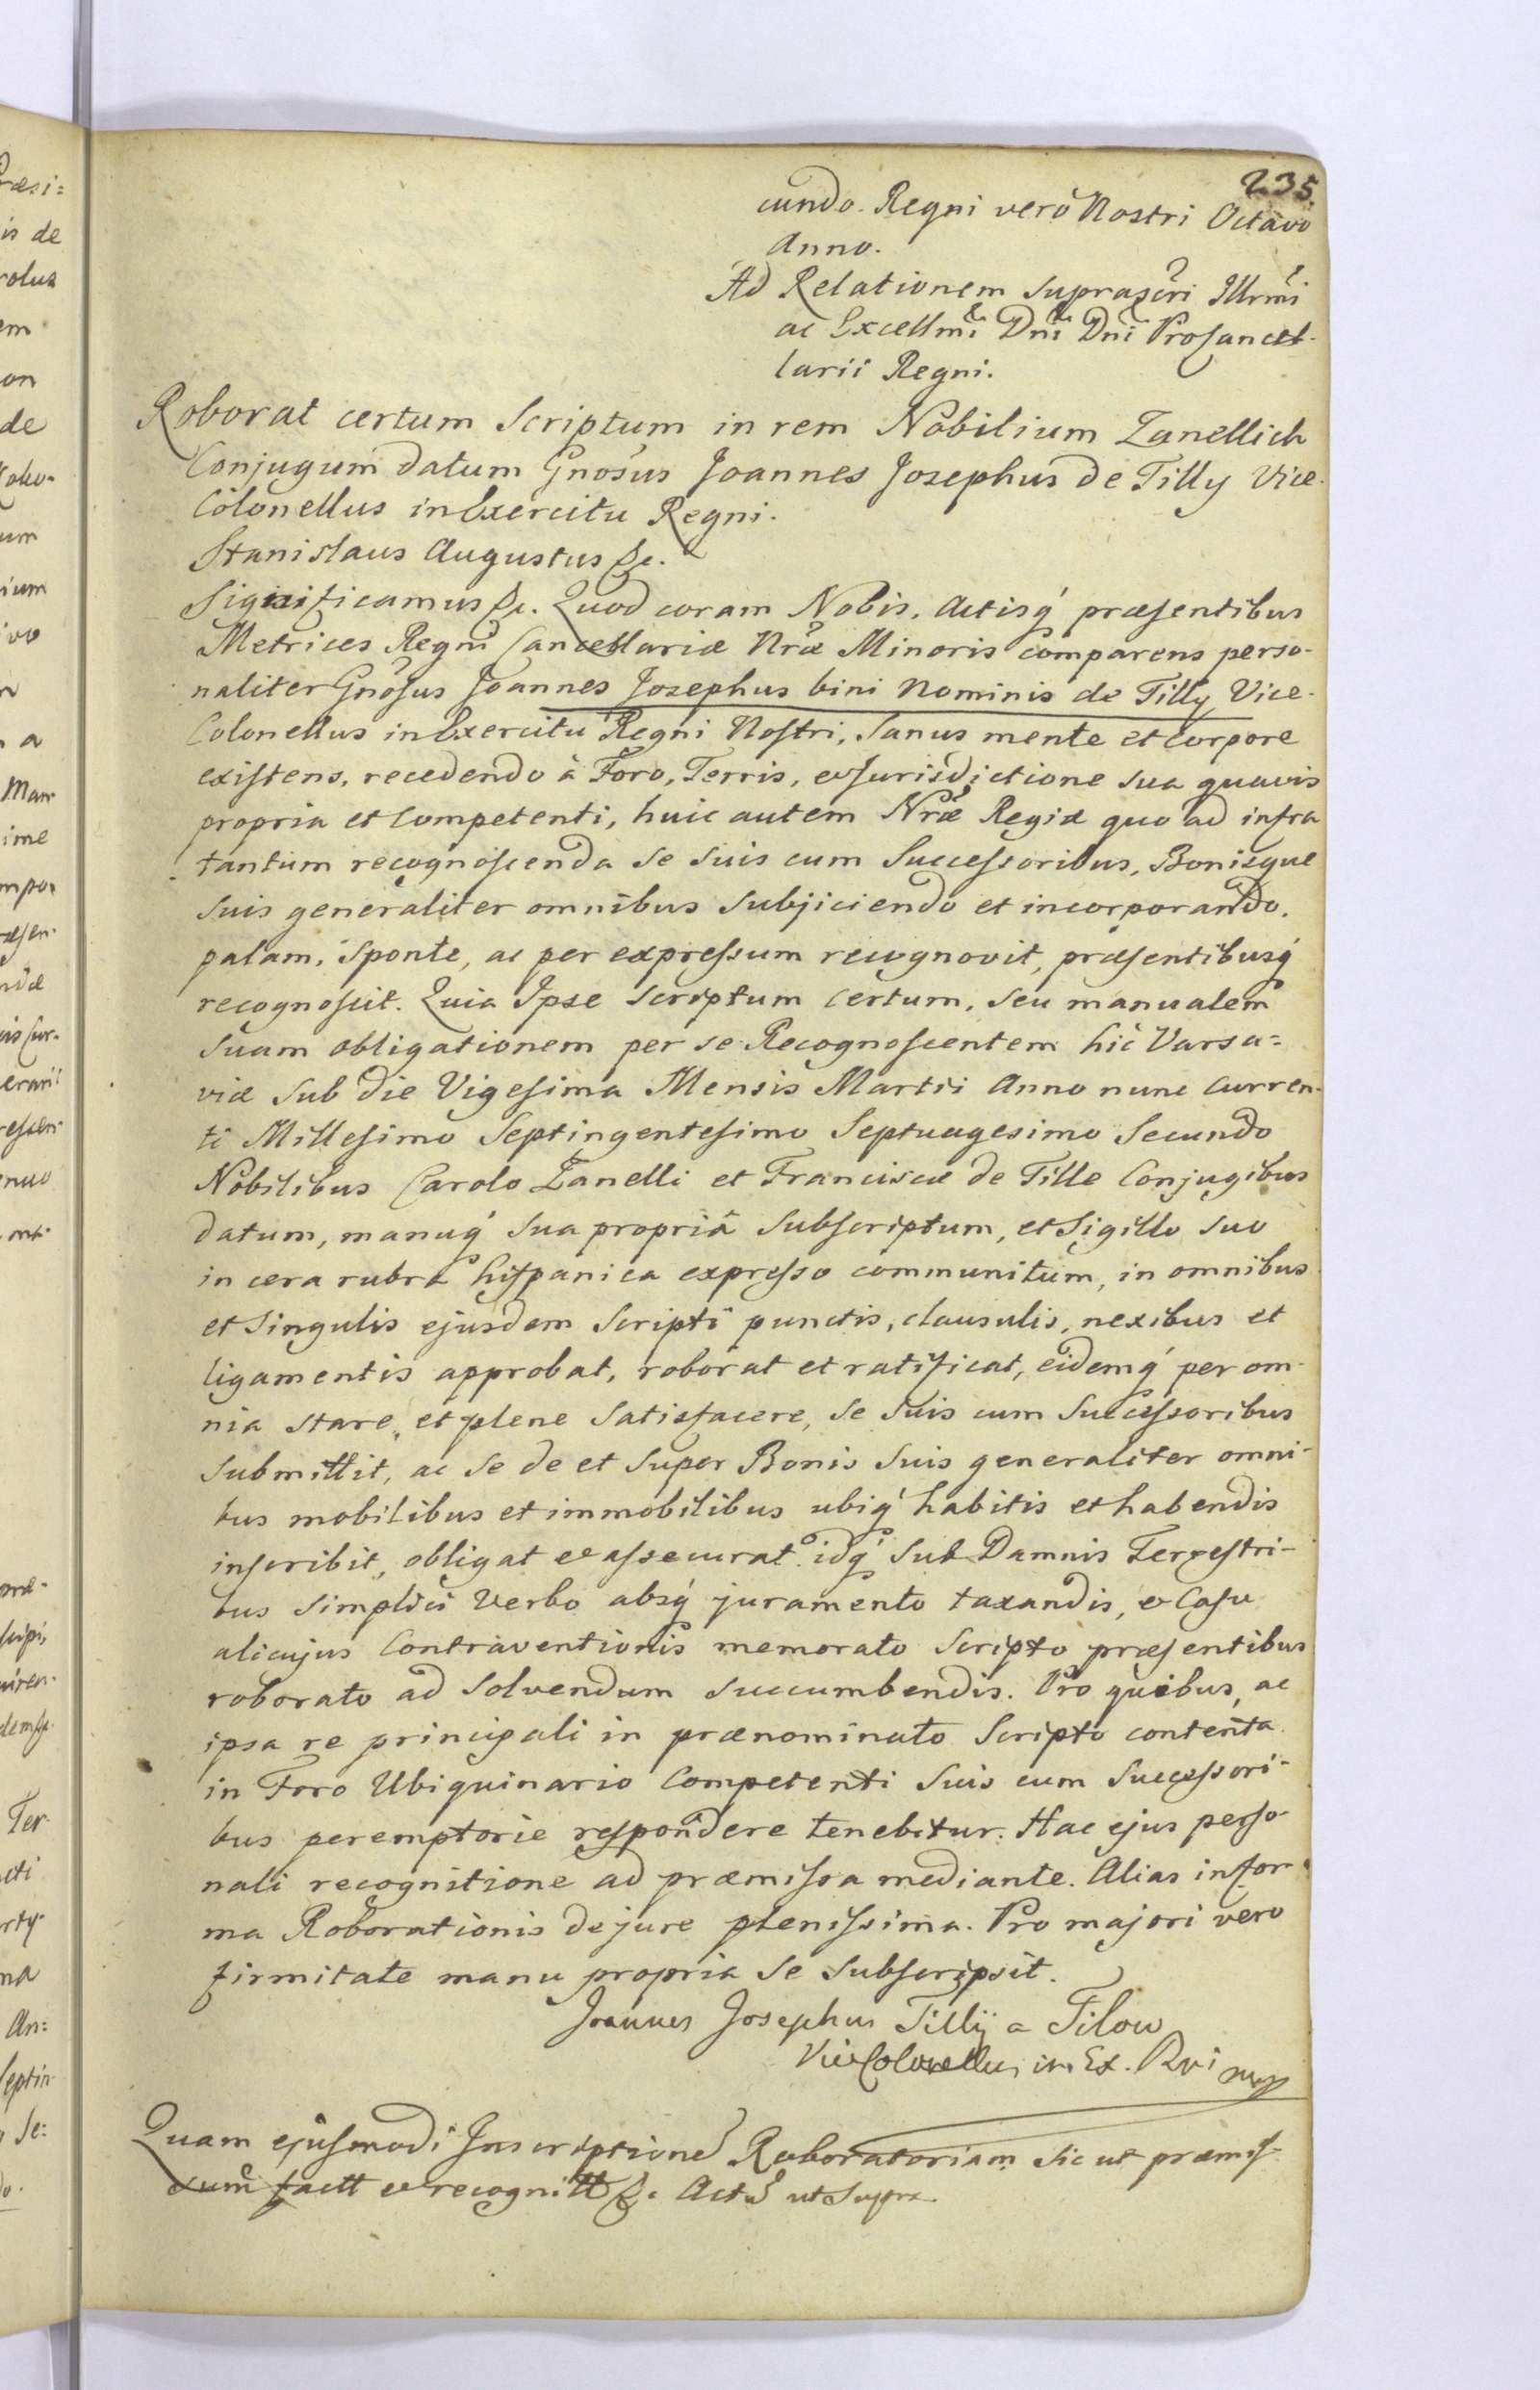 235.
cundo. Regni verò Nostri Octavo
Anno.
Ad Relationem suprascri Illrmi
ac Excellmi Dni Dni Procancel-
larii Regni.
Roborat certum Scriptum in rem Nobilium Zanellich
Conjugum datum Gnosus Joannes Josephus de Tilly Vice-
Colonellus in Exercitu Regni.
Stanislaus Augustus &c.
Significamus &c. Quod coram Nobis, Actisq́ præsentibus
Metrices Regni Cancellariæ Nræ Minoris comparens perso-
naliter Gnosus Joannes Josephus bini Nominis de Tilly Vice-
Colonellus in Exercitu Regni Nostri, Sanus mente et Corpore
existens, recedendo à Foro, Terris, et Jurisdictione sua quavis
propria et Competenti, huic autem Nræ Regiæ quo ad infra
tantum recognoscenda se suis cum Successoribus, Bonisque
suis generaliter omnibus subjiciendo et incorporando.
palam, sponte, ac per expressum recognovit, præsentibusq́
recognoscit. Quia Ipse Scriptum certum, seu manualem
suam obligationem per se Recognoscentem hîc Varsa=
viæ sub die Vigesima Mensis Martii Anno nunc curren-
ti Millesimo Septingentesimo Septuagesimo Secundo
Nobilibus Carolo Zanelli et Franciscæ de Tille Conjugibus
datum, manuq́ sua propriâ subscriptum, et Sigillo suo
in cera rubra hispanica expresso communitum, in omnibus
et Singulis ejusdem Scripti punctis, clausulis, nexibus et
ligamentis approbat, roborat et ratificat, eidemq́ per om-
nia stare, et plene satisfacere, se suis cum successoribus
submittit, ac se de et super Bonis suis generaliter omni-
bus mobilibus et immobilibus ubiq́ habitis et habendis
inscribit, obligat et assecurat. idq́ sub Damnis Terrestri-
bus simplici Verbo absq́ juramento taxandis, et Casu
alicujus Contraventionis memorato Scripto præsentibus
roborato ad solvendum succumbendis. Pro quibus, ac
ipsa re principali in prænominato Scripto contenta
in Foro Ubiquinario Competenti suis cum successori-
bus peremptorie respondere tenebitur. Hac ejus perso-
nali recognitione ad præmissa mediante. Alias in for-
ma Roborationis de jure plenissima. Pro majori vero
firmitate manu propria se subscripsit.
Joannes Josephus Tillÿ a Tilow
ViceColonellus in Ex. Rni mpp
Quam ejusmodi Inscriptione Roboratoriam sic ut præmis-
sum factt et recognitt &c Actu ut Supra.